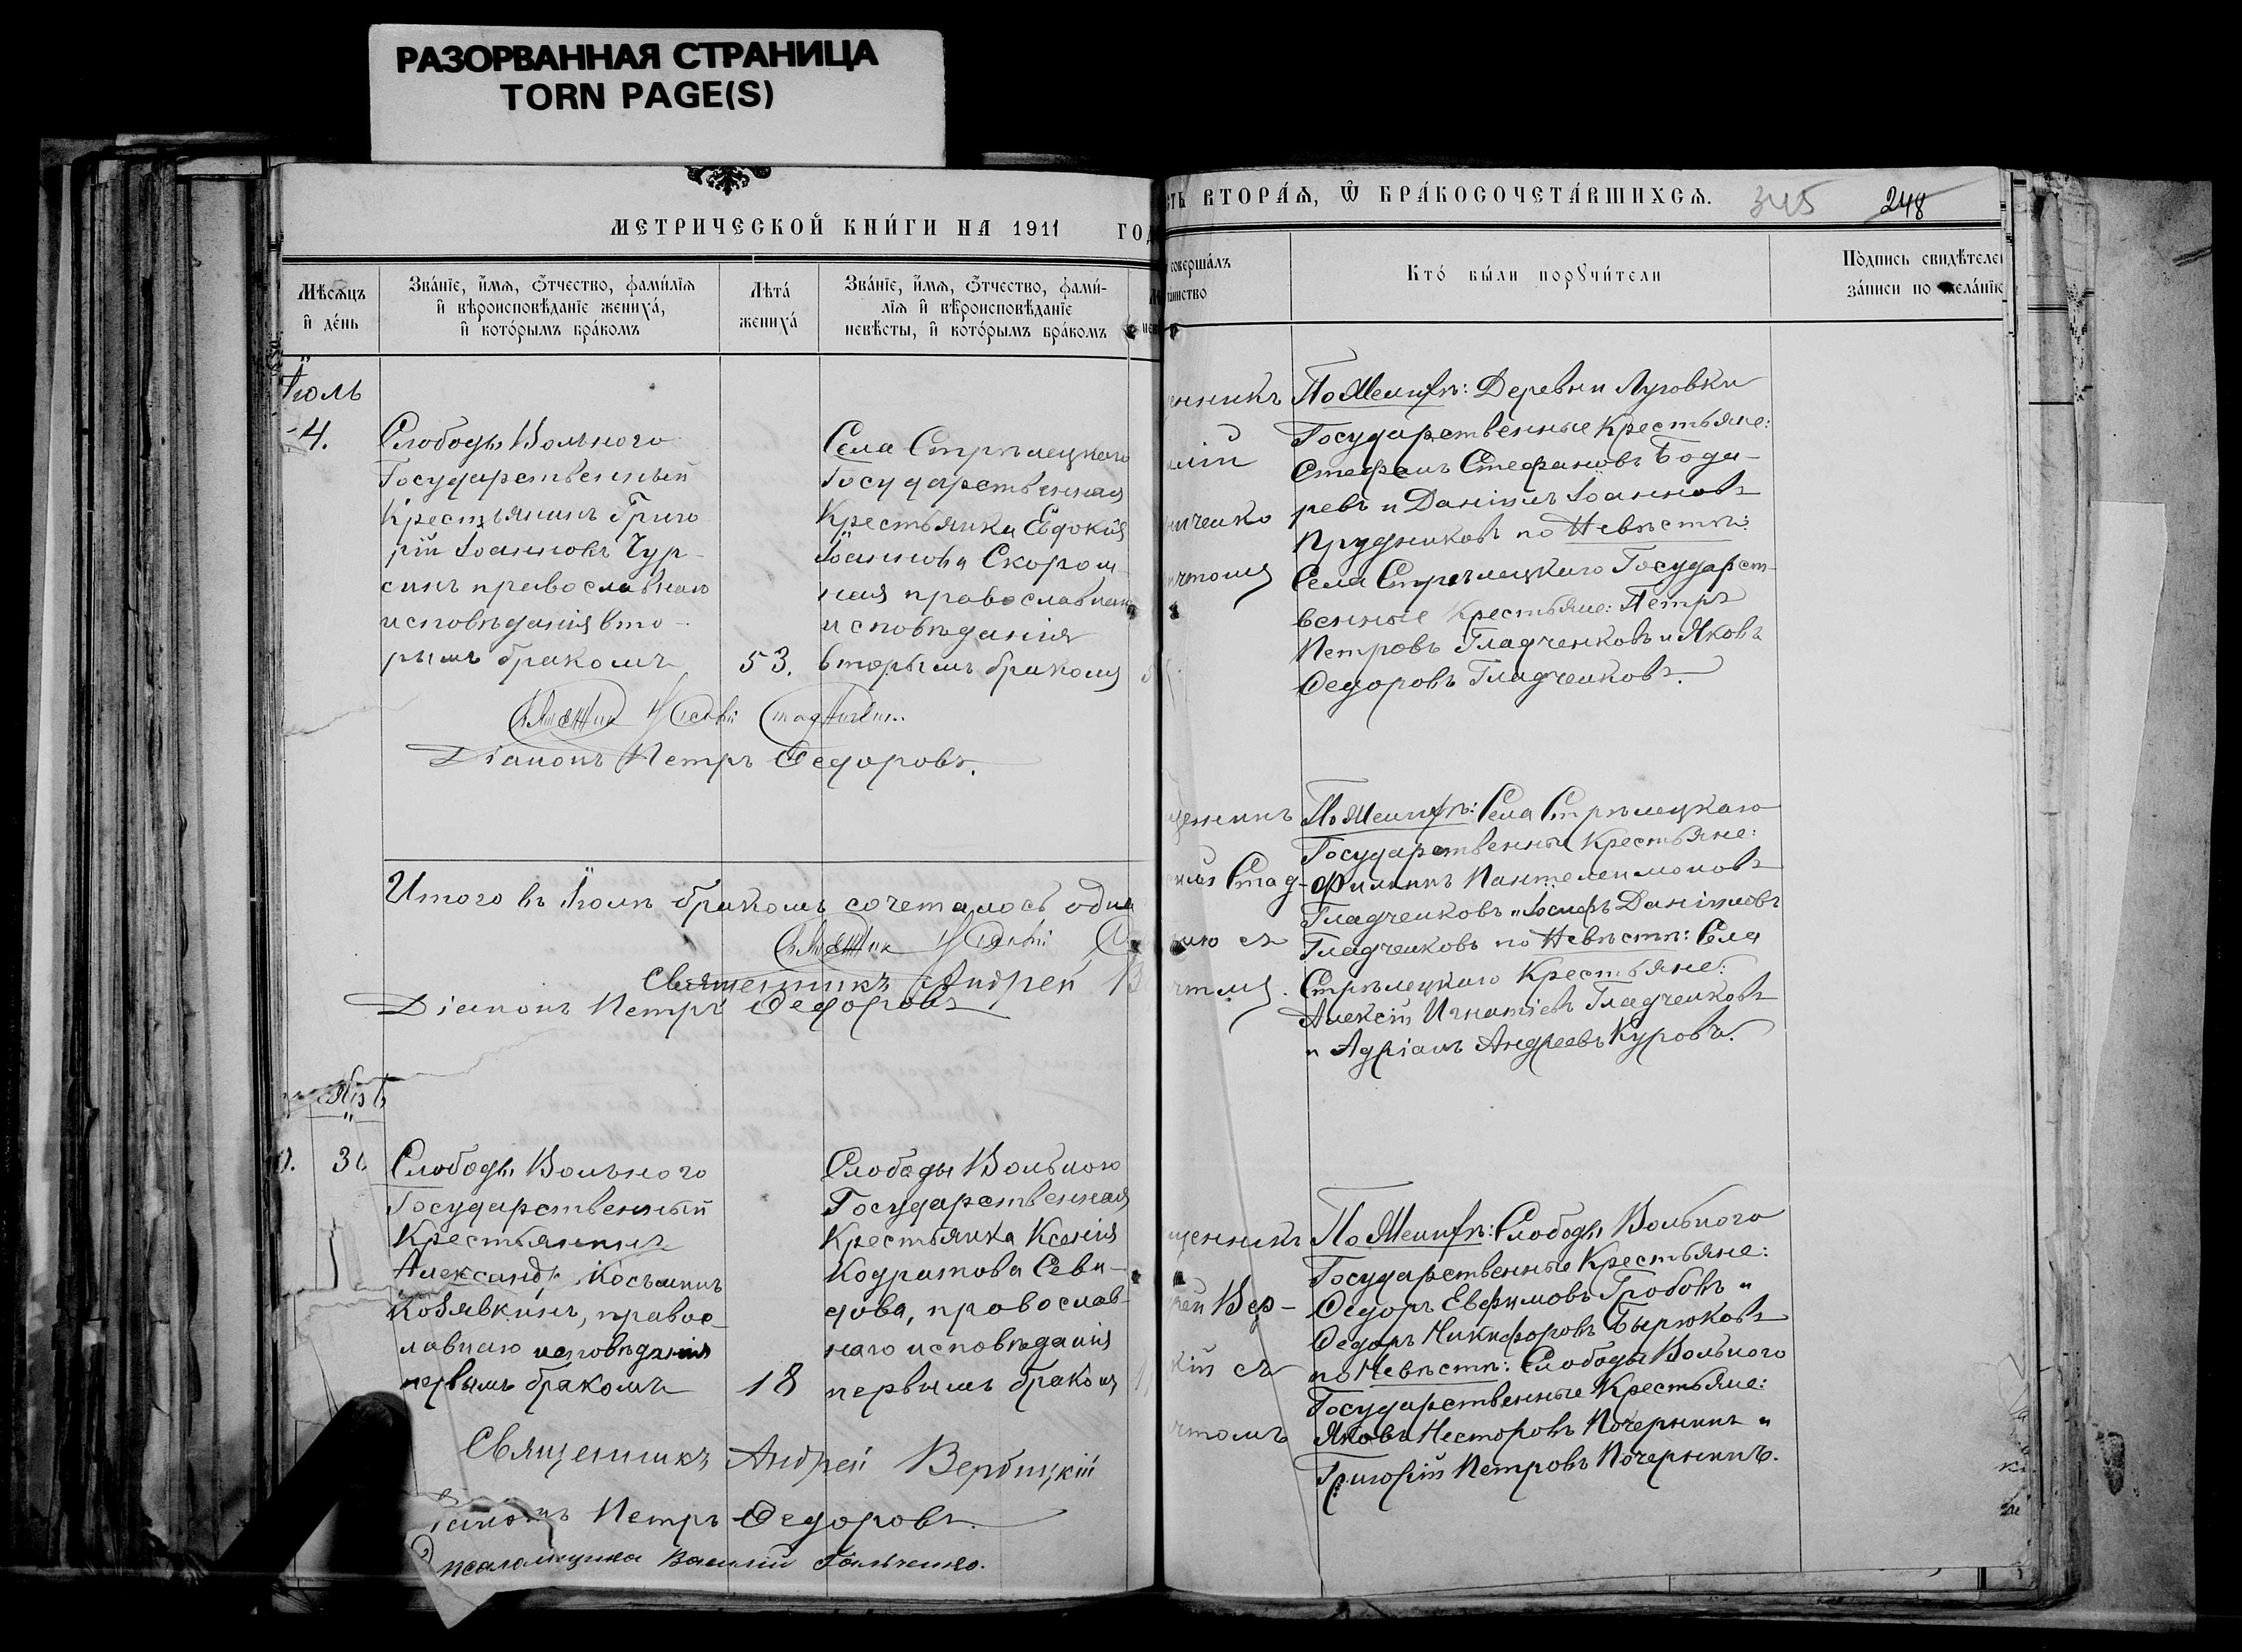 РАЗОРВАННАЯ СТРАНИЦА
TORN PAGE(S)
МЕТРИЧЕСКОЙ КНИГИ НА 1911 ГОД
Мѣсѧцъ и день
Званіе, имѧ, ѿтчество, фамиліѧ и вѣроисповѣданіе жениха, и которымъ бракомъ
Лѣта жениха
Званіе, имѧ, ѿтчество, фамиліѧ и вѣроисповѣданіе невѣсты, и которымъ бракомъ
Іюль
4.
Слободы Вольнаго
Государственный
Крестьянинъ Григо
рій Іоанновъ Чур-
синъ православнаго
исповѣданія вто-
рымъ бракомъ
53.
Села Стрѣлецкаго
Государственная
Крестьянка Евдокія
Іоаннова Скорои
ная православнаго
исповѣданія
вторымъ бракомъ
Діаконъ Петръ Федоровъ.
Итого въ Іюлѣ бракомъ сочеталось одна
Священникъ Андрей В
Діаконъ Петръ Федоровъ
30
Слободы Вольного
Государственный
Крестьянинъ
Александръ Косьминъ
Козявкинъ, правос
лавнаго исповѣданія
первымъ бракомъ
18
Слободы Вольного
Государственная
Крестьянка Ксенія
Кодратова Севи-
дова, провослав-
наго исповѣданія
первымъ бракомъ
Священникъ Андрей Вербицкій
Діаконъ Петръ Федоровъ.
псаломщикъ Василій Гальченко.
СТЬ ВТОРАѦ, Ѿ БРАКОСОЧЕТАВШИХСѦ.
345
248
совершалъ
таинство
Кто были порꙋчители
Подпись свидѣтелей
записи по желанію
енникъ
ниченко
По Женихѣ: Деревни Луговки
Государственные Крестьяне:
Стефанъ Стефановъ Бода-
ревъ и Даніилъ Іоанновъ
Прудниковъ по Невѣстѣ:
Села Стрѣлецкаго Государст-
венные Крестьяне: Петръ
Петровъ Гладченковъ и Яковъ
Федоровъ Гладченковъ.
щенникъ
Стад-
По Женихѣ: Села Стрѣлецкаго
Государственные Крестьяне:
Филиппъ Пантелеимоновъ
Гладченковъ и Іосифъ Даніиловъ
Гладченковъ по Невѣстѣ: Села
Стрѣлецкаго Крестьяне:
Алексѣй Игнатіевъ Гладченковъ
и Адріанъ Андреевъ Куровъ.
щенникъ
рей Вер-
кій съ
чтомъ
По Женихѣ: Слободы Вольного
Государственные Крестьяне:
Федоръ Евфимовъ Гробовъ и
Федоръ Никифоровъ Бырюковъ
по Невѣстѣ: Слободы Вольного
Государственные Крестьяне:
Яковъ Несторовъ Почернинъ и
Григорій Петровъ Почернинъ.